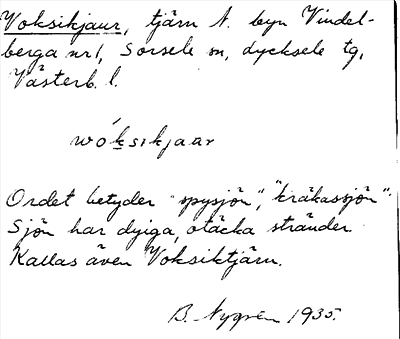 Voksikjaur, tjärn t. byn Vindel-
berga nr1, Sorsele sn, Lycksele tg,
Västerb. l.
wóksikjaar
Ordet betyder "spysjön", "kräkassjön".
Sjön har dyiga, otäcka stränder.
Kallas även Voksiktjärn.
B. Nygren 1935.